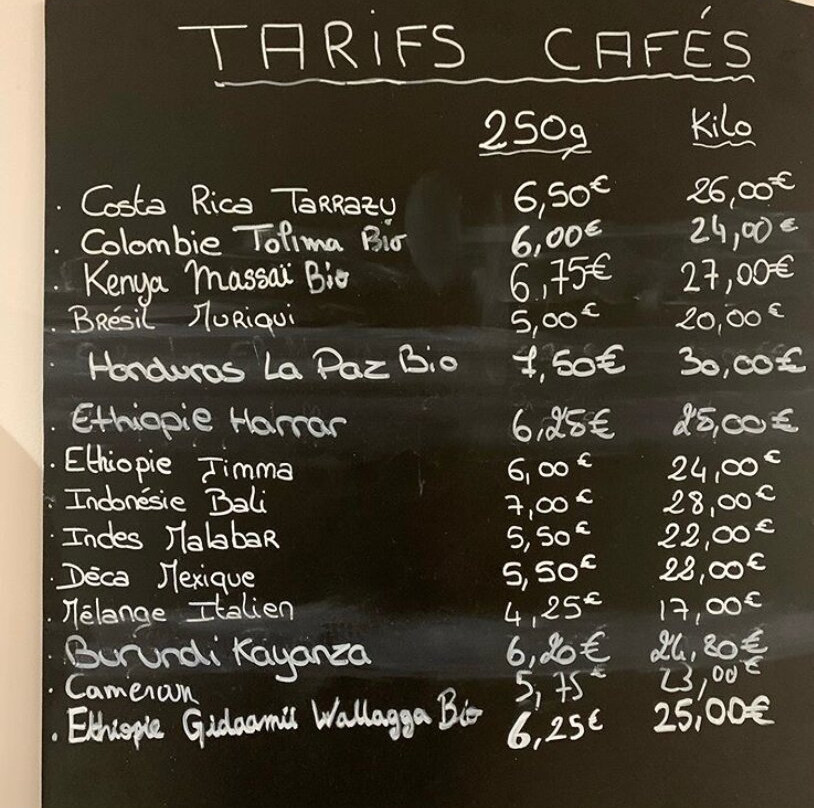 TARIFS CAFÉS
250g Kilo
. Costa Rica TARRAZU 6,50€ 26,00€
. Colombie Tolima Bio 6,00€ 24,00€
. Kenya Massaï Bio 6,75€ 27,00€
. BRÉSIL MURIQUI 5,00€ 20,00€
. Honduras La Paz Bio 7,50€ 30,00€
. Ethiopie Harrar 6,25€ 25,00€
. Ethiopie Jimma 6,00€ 24,00€
. Indonésie Bali 7,00€ 28,00€
. Indes Malabar 5,50€ 22,00€
. Déca Mexique 5,50€ 22,00€
. Mélange Italien 4,25€ 17,00€
. Burundi Kayanza 6,20€ 24,80€
. Cameroun 5,75€ 23,00€
. Ethiopie Gidaamii Wallagga Bio 6,25€ 25,00€